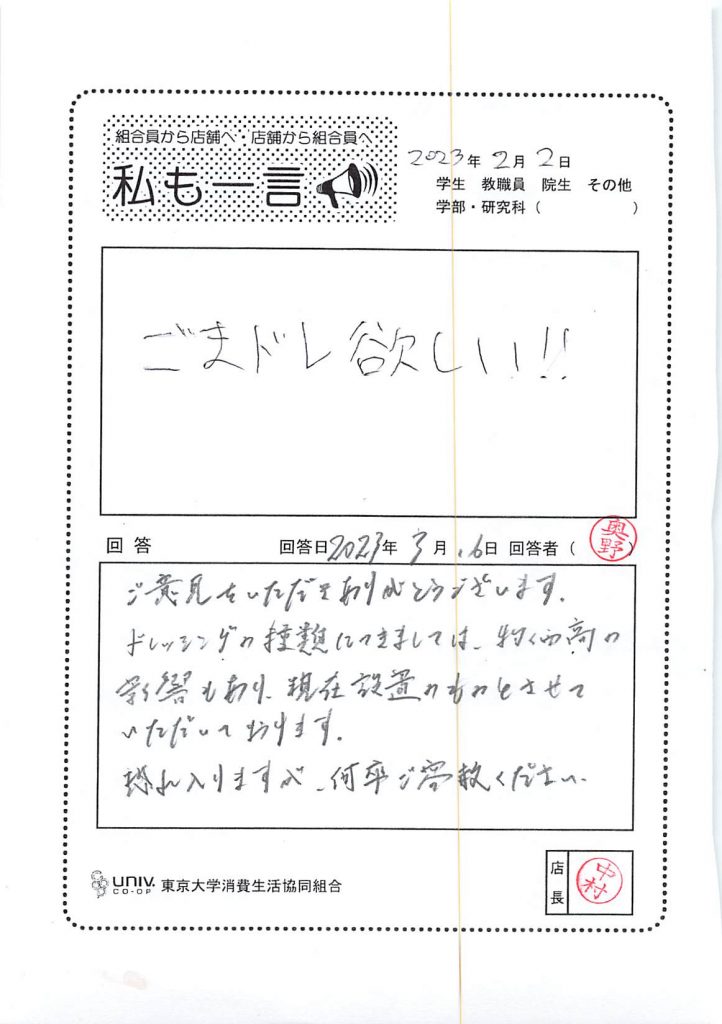 組合員から店舗へ・店舗から組合員へ
私も一言
2023年 2月 2日
学生 教職員 院生 その他
学部・研究科（ ）
ごまドレ欲しい!!
回答 回答日2023年 3月 6日 回答者（奥野）
ご意見をいただきありがとうございます。
ドレッシングの種類につきましては、物価高の
影響もあり、現在設置のものとさせて
いただいております。
恐れ入りますが、何卒ご容赦ください。
UNIV. CO-OP 東京大学消費生活協同組合
店長 中村